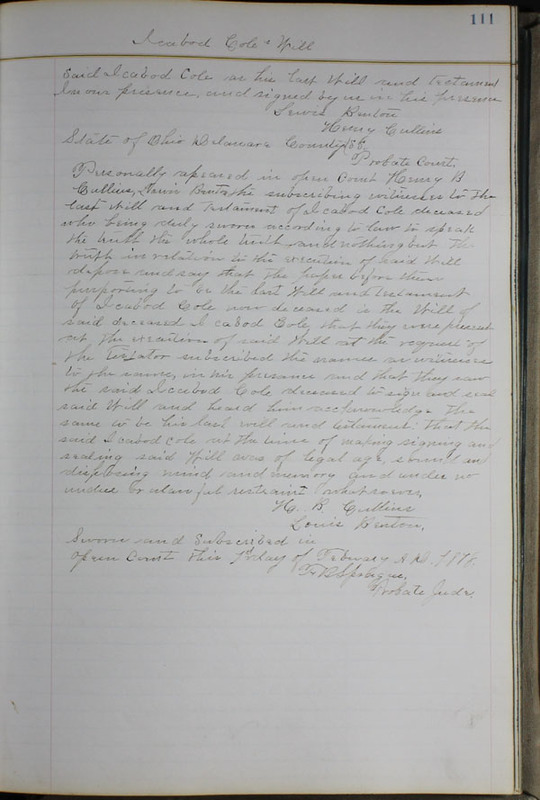 111
Icabod Cole's Will
Said Icabod Cole as his last Will and testament
In our presence, and signed by us in his presence
Lewis Benton
Henry Cullins
State of Ohio Delaware County SS.
Probate Court.
Personally apeared in open Court Henry B
Cullins, the subscribing witnesses to the
last Will and Testament of Icabod Cole deceased
who being duly sworn according to law to speak
the truth the whole truth and nothing but the
truth in relation to the execution of said Will
depose and say that the paper before them
purporting to be the last Will and testament
of Icabod Cole now deceased is the Will of
said deceased Icabod Cole, that they were present
at the execution of said Will at the request of
the Testator subscribed the names as witnesses
to the same, in his presence and that they saw
the said Icabod Cole deceased to sign and seal
said Will and heard him acknowledge the
same to be his last will and testament: that the
said Icabod Cole at the time of making signing and
sealing said Will was of legal age, sound and
disposing mind and memory and under no
undue or unlawful restraint whatsoever.
H. B Cullins
Louis Benton,
Sworn and Subscribed in
Open Court this 1st day of Febuary A.D. 1878.
F B Sprague,
Probate Judge.